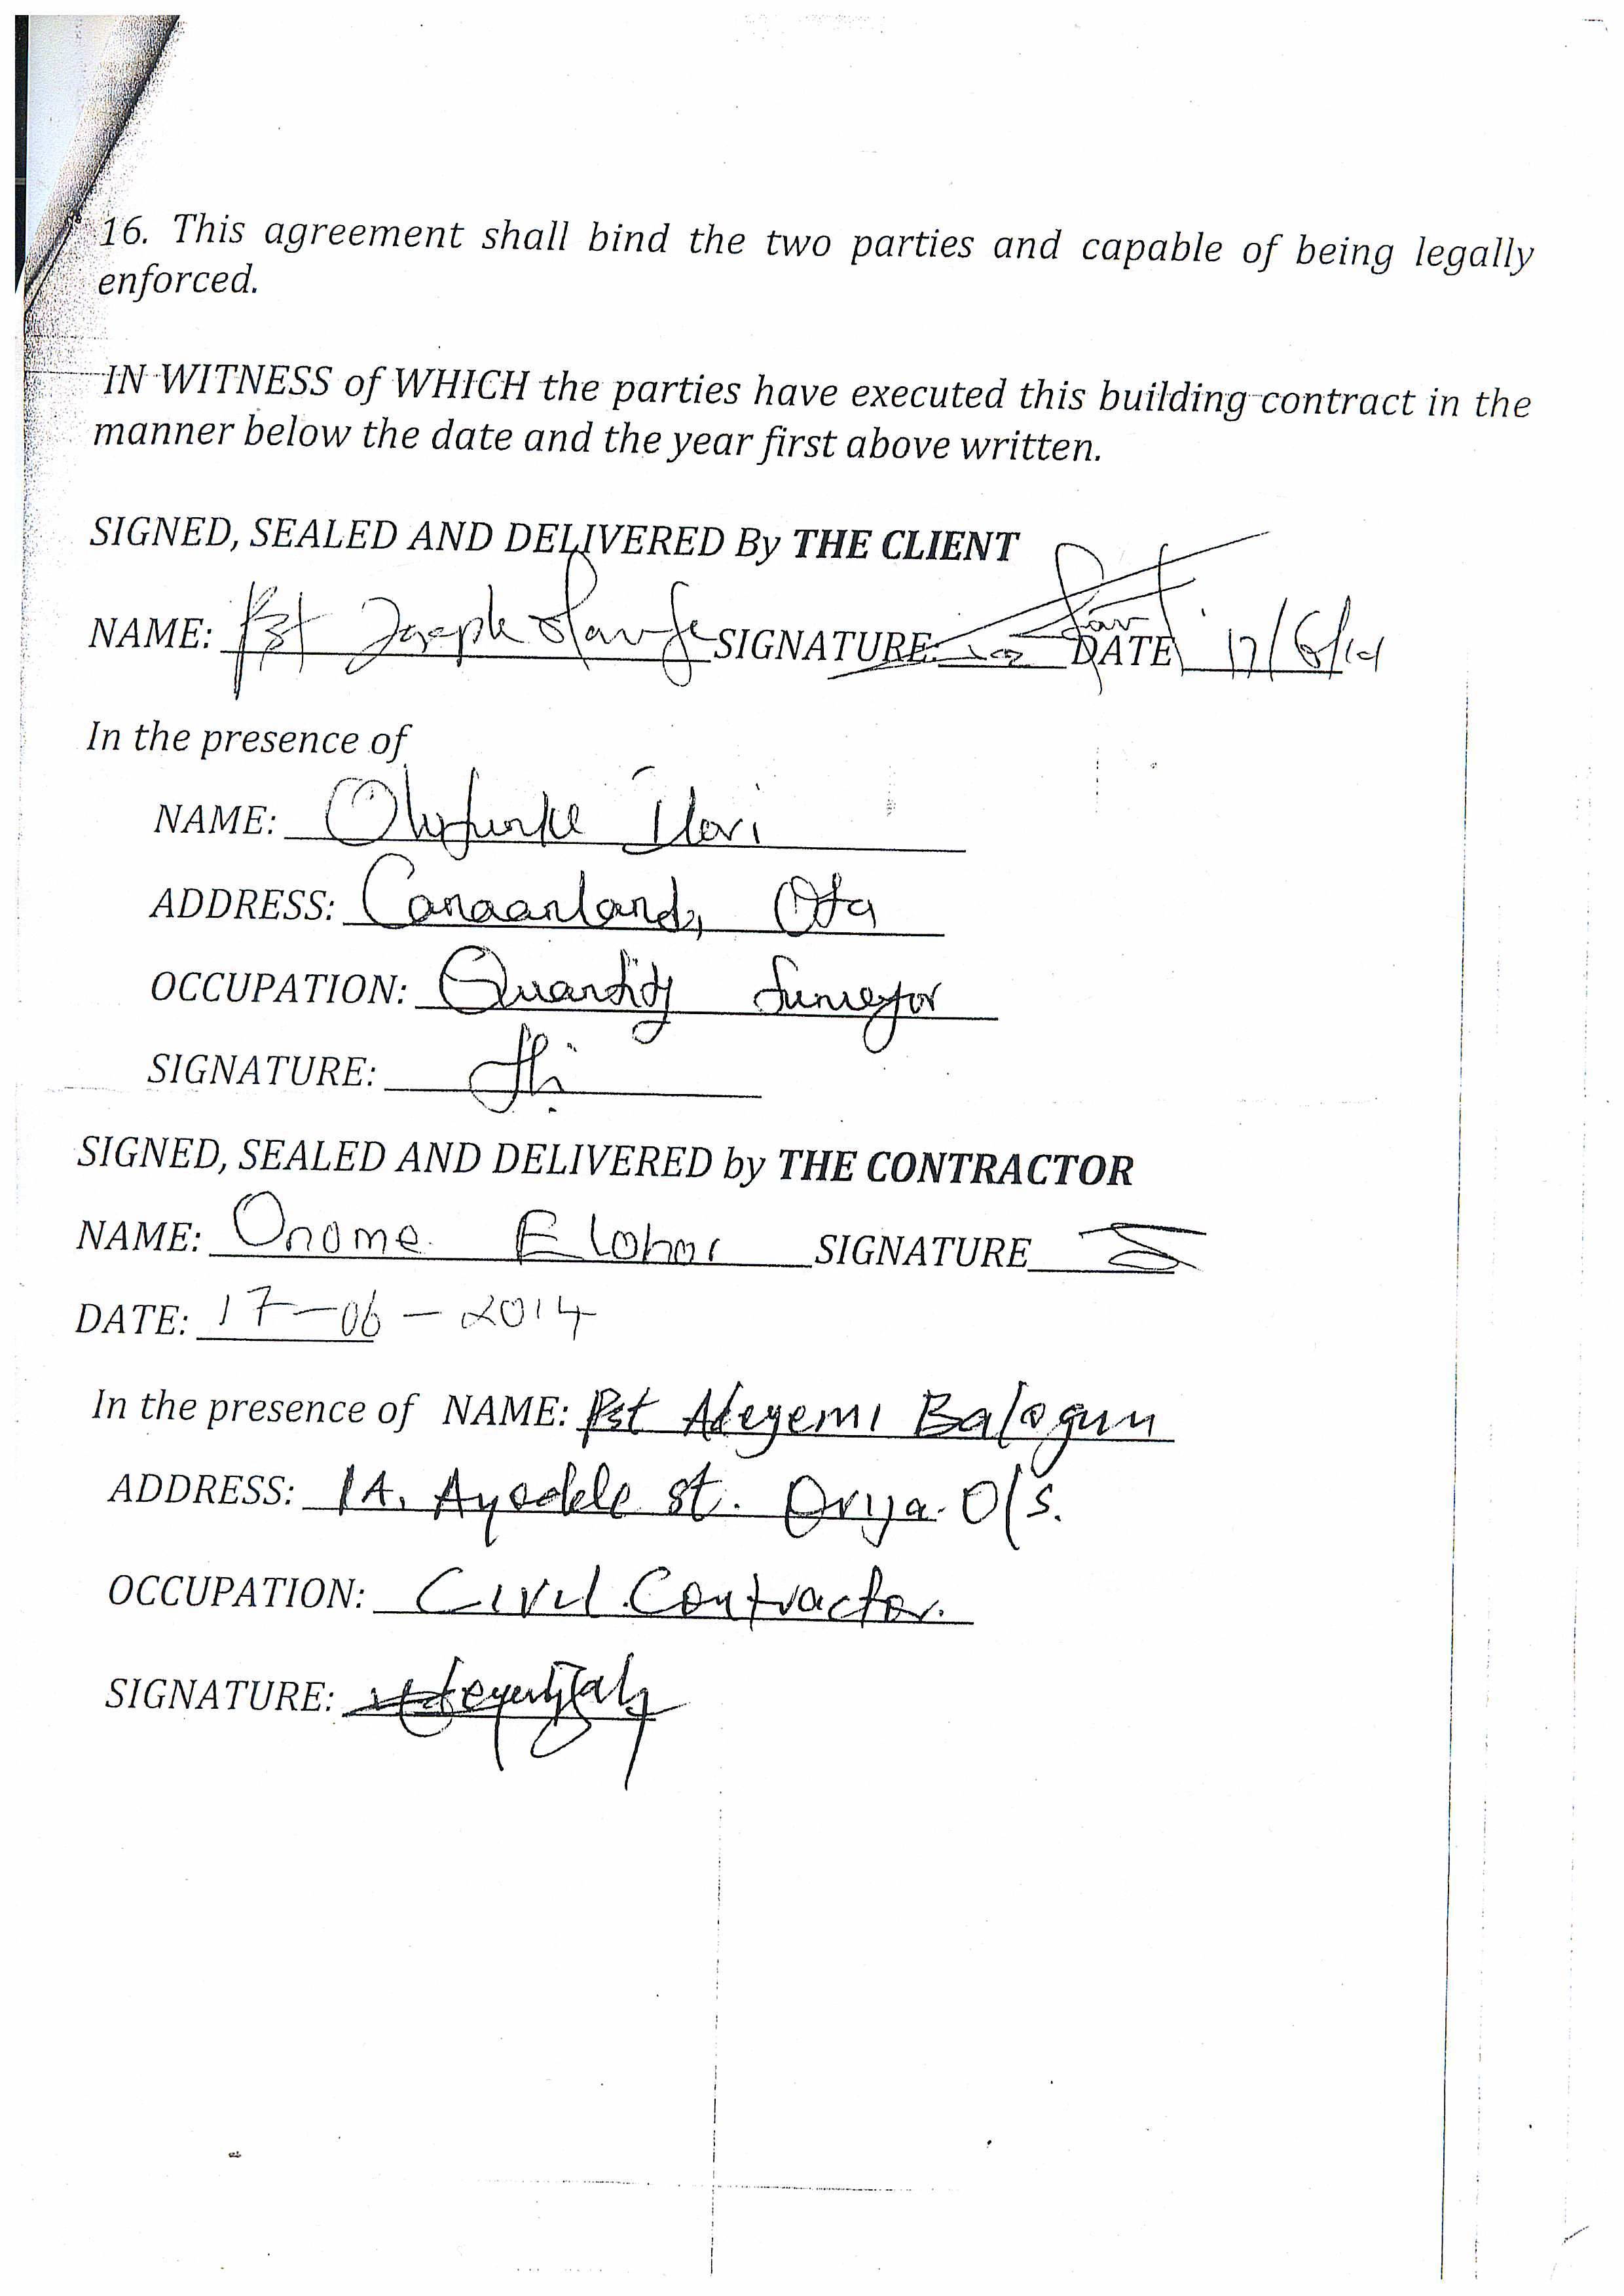 16. This agreement shall bind the two parties and capable of being legally
enforced.
IN WITNESS of WHICH the parties have executed this building contract in the
manner below the date and the year first above written.
SIGNED, SEALED AND DELIVERED By THE CLIENT
NAME: Pst Joseph Olanife SIGNATURE: DATE 17/6/14
In the presence of
NAME: Olufunke Ilori
ADDRESS: Canaanland, Ota
OCCUPATION: Quantity Surveyor
SIGNATURE:
SIGNED, SEALED AND DELIVERED by THE CONTRACTOR
NAME: Onome Elohor SIGNATURE
DATE: 17-06-2014
In the presence of NAME: Pst Adeyemi Balogun
ADDRESS: 1A, Ayodele st. Orija. O/S.
OCCUPATION: Civil Contractor.
SIGNATURE: